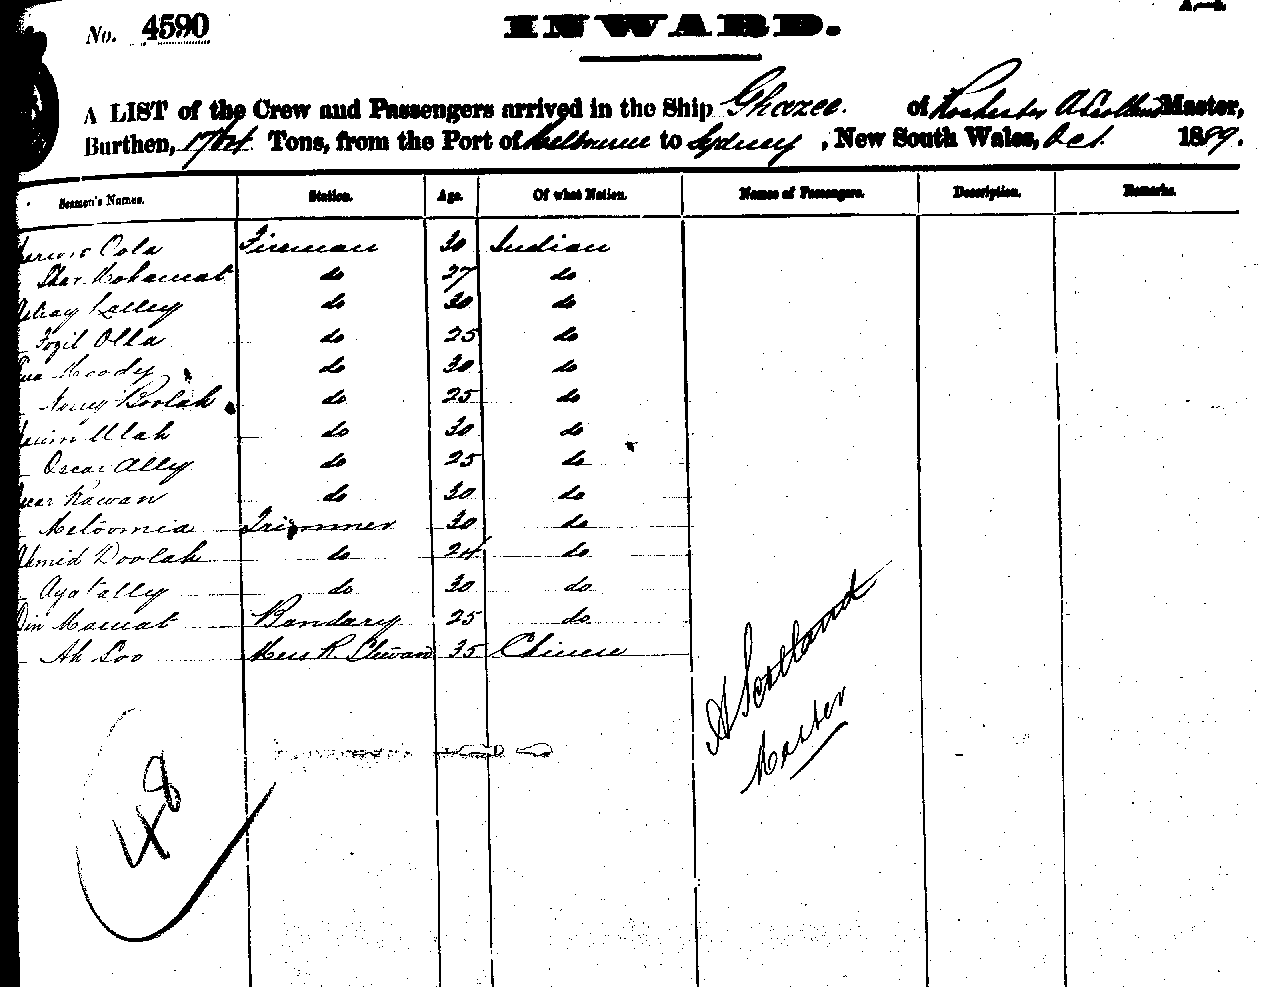 No. 4590
INWARD.
A LIST of the Crew and Passengers arrived in the Ship Ghazee. of Rochester A Scotland Master,
Burthen, 1764 Tons, from the Port of Melbourne to Sydney, New South Wales, Oct. 1889.
Seamen's Names. Station. Age. Of what Nation. Names of Passengers. Description. Remarks.
Cola Fireman 30 Indian
Shar Mohamat do 27 do
Lalley do 30 do
Fozil Olla do 25 do
Moody do 30 do
Boolah do 25 do
Ulah do 30 do
Oscar Ally do 25 do
Rawan do 30 do
Meloomia Trimmer 30 do
Ahmid Doolah do 24 do
Ayatally do 30 do
Din Mamat Bandary 25 do
Ah Loo Mess R 35 Chinese
A Scotland
Master
48